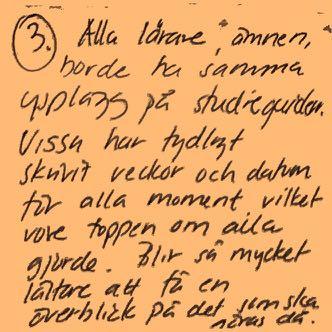 3. Alla lärare, ämnen,
borde ha samma
upplägg på studieguiden.
Vissa har tydligt
skrivit veckor och datum
för alla moment vilket
vore toppen om alla
gjorde. Blir så mycket
lättare att få en
överblick på det som ska
göras då.